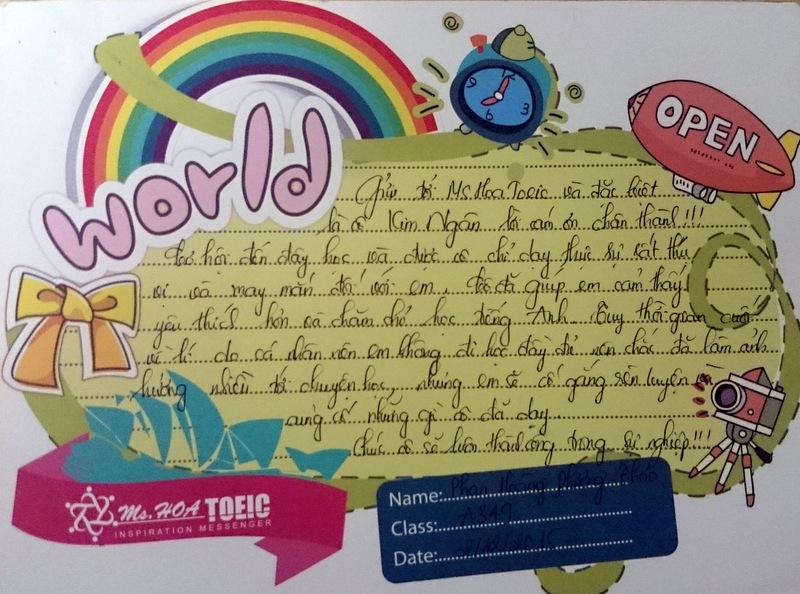 world
OPEN
12
9
3
6
Gửi tới Ms Hoa Toeic và đặc biệt
là cô Kim Ngân lời cảm ơn chân thành!!!
Cơ hội đến đây học và được cô chỉ dạy thực sự rất thú
vị và may mắn đối với em, Cô đã giúp em cảm thấy
yêu thích hơn và chăm chỉ học tiếng Anh. Tuy thời gian cuối
vì lí do cá nhân nên em không đi học đầy đủ nên chắc đã làm ảnh
hưởng nhiều tới chuyện học, nhưng em sẽ cố gắng rèn luyện
củng cố những gì cô đã dạy
Chúc cô sẽ luôn thành công trong sự nghiệp!!!
Ms. HOA TOEIC
INSPIRATION MESSENGER
Name: Phan Hoàng
Class: A349
Date: